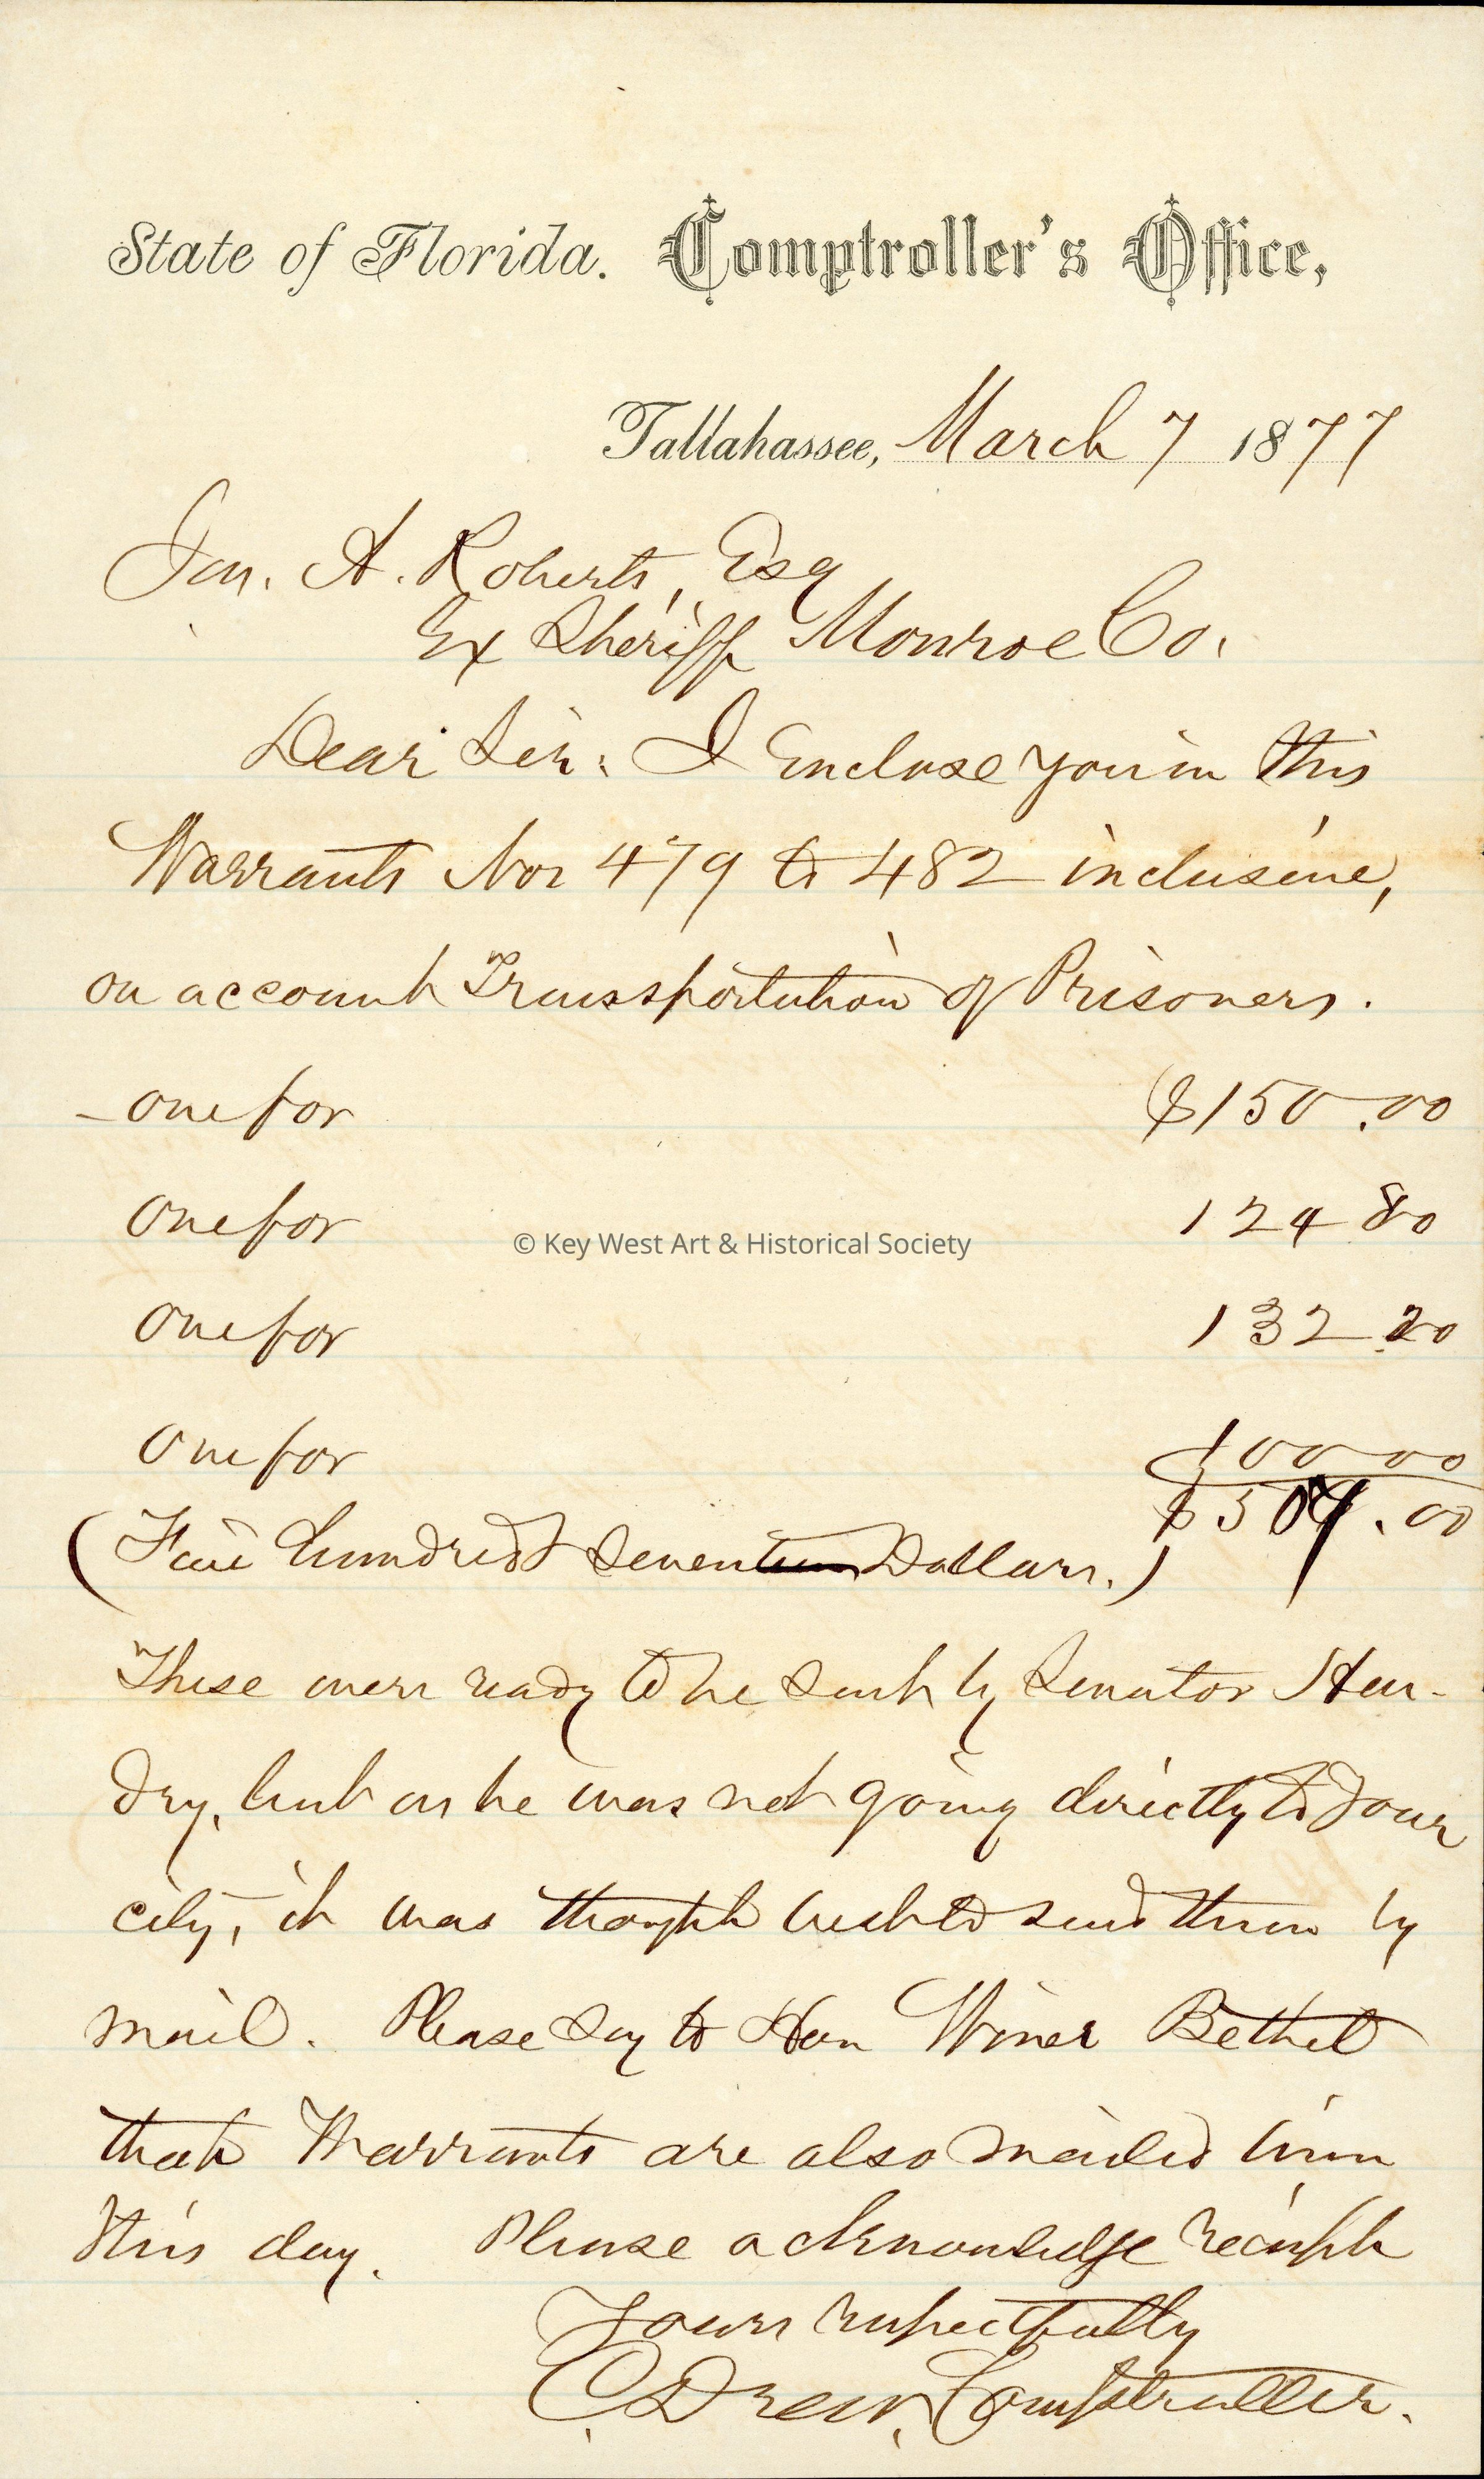 State of Florida. Comptroller's Office,
Tallahassee, March 7 1877
Jon. A. Roberts, Esq
Ex Sheriff Monroe Co.
Dear Sir: I Enclose you in this
Warrants Nos 479 to 482 inclusive,
on account Transportation of Prisoners.
- One for $150.00
One for 124 80
One for 132.20
One for 100 00
$507.00
(Five hundred Seventeen Dollars.)
These were ready to be sent by Senator Hen-
dry, but as he was not going directly to Your
city, it was thought best to send them by
mail. Please say to Hon Winer Bethel
that Warrants are also mailed him
this day. Please acknowledge receipt
Yours respectfully
C. Drew, Comptroller.
© Key West Art & Historical Society